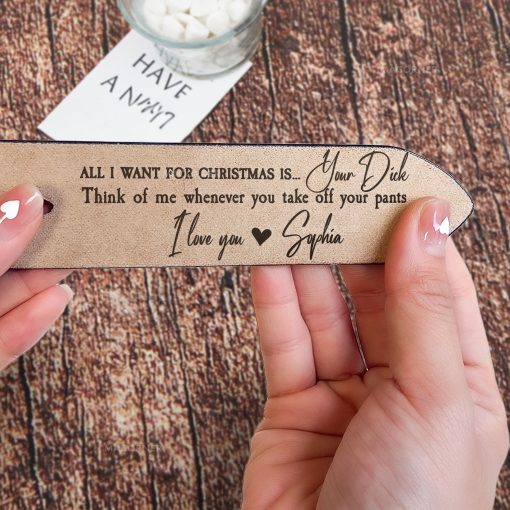 HAVE
A
ALL I WANT FOR CHRISTMAS IS... Your Dick
Think of me whenever you take off your pants
I love you ♥ Sophia